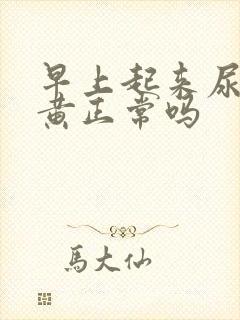 早上起来尿
黄正常吗
馬大仙